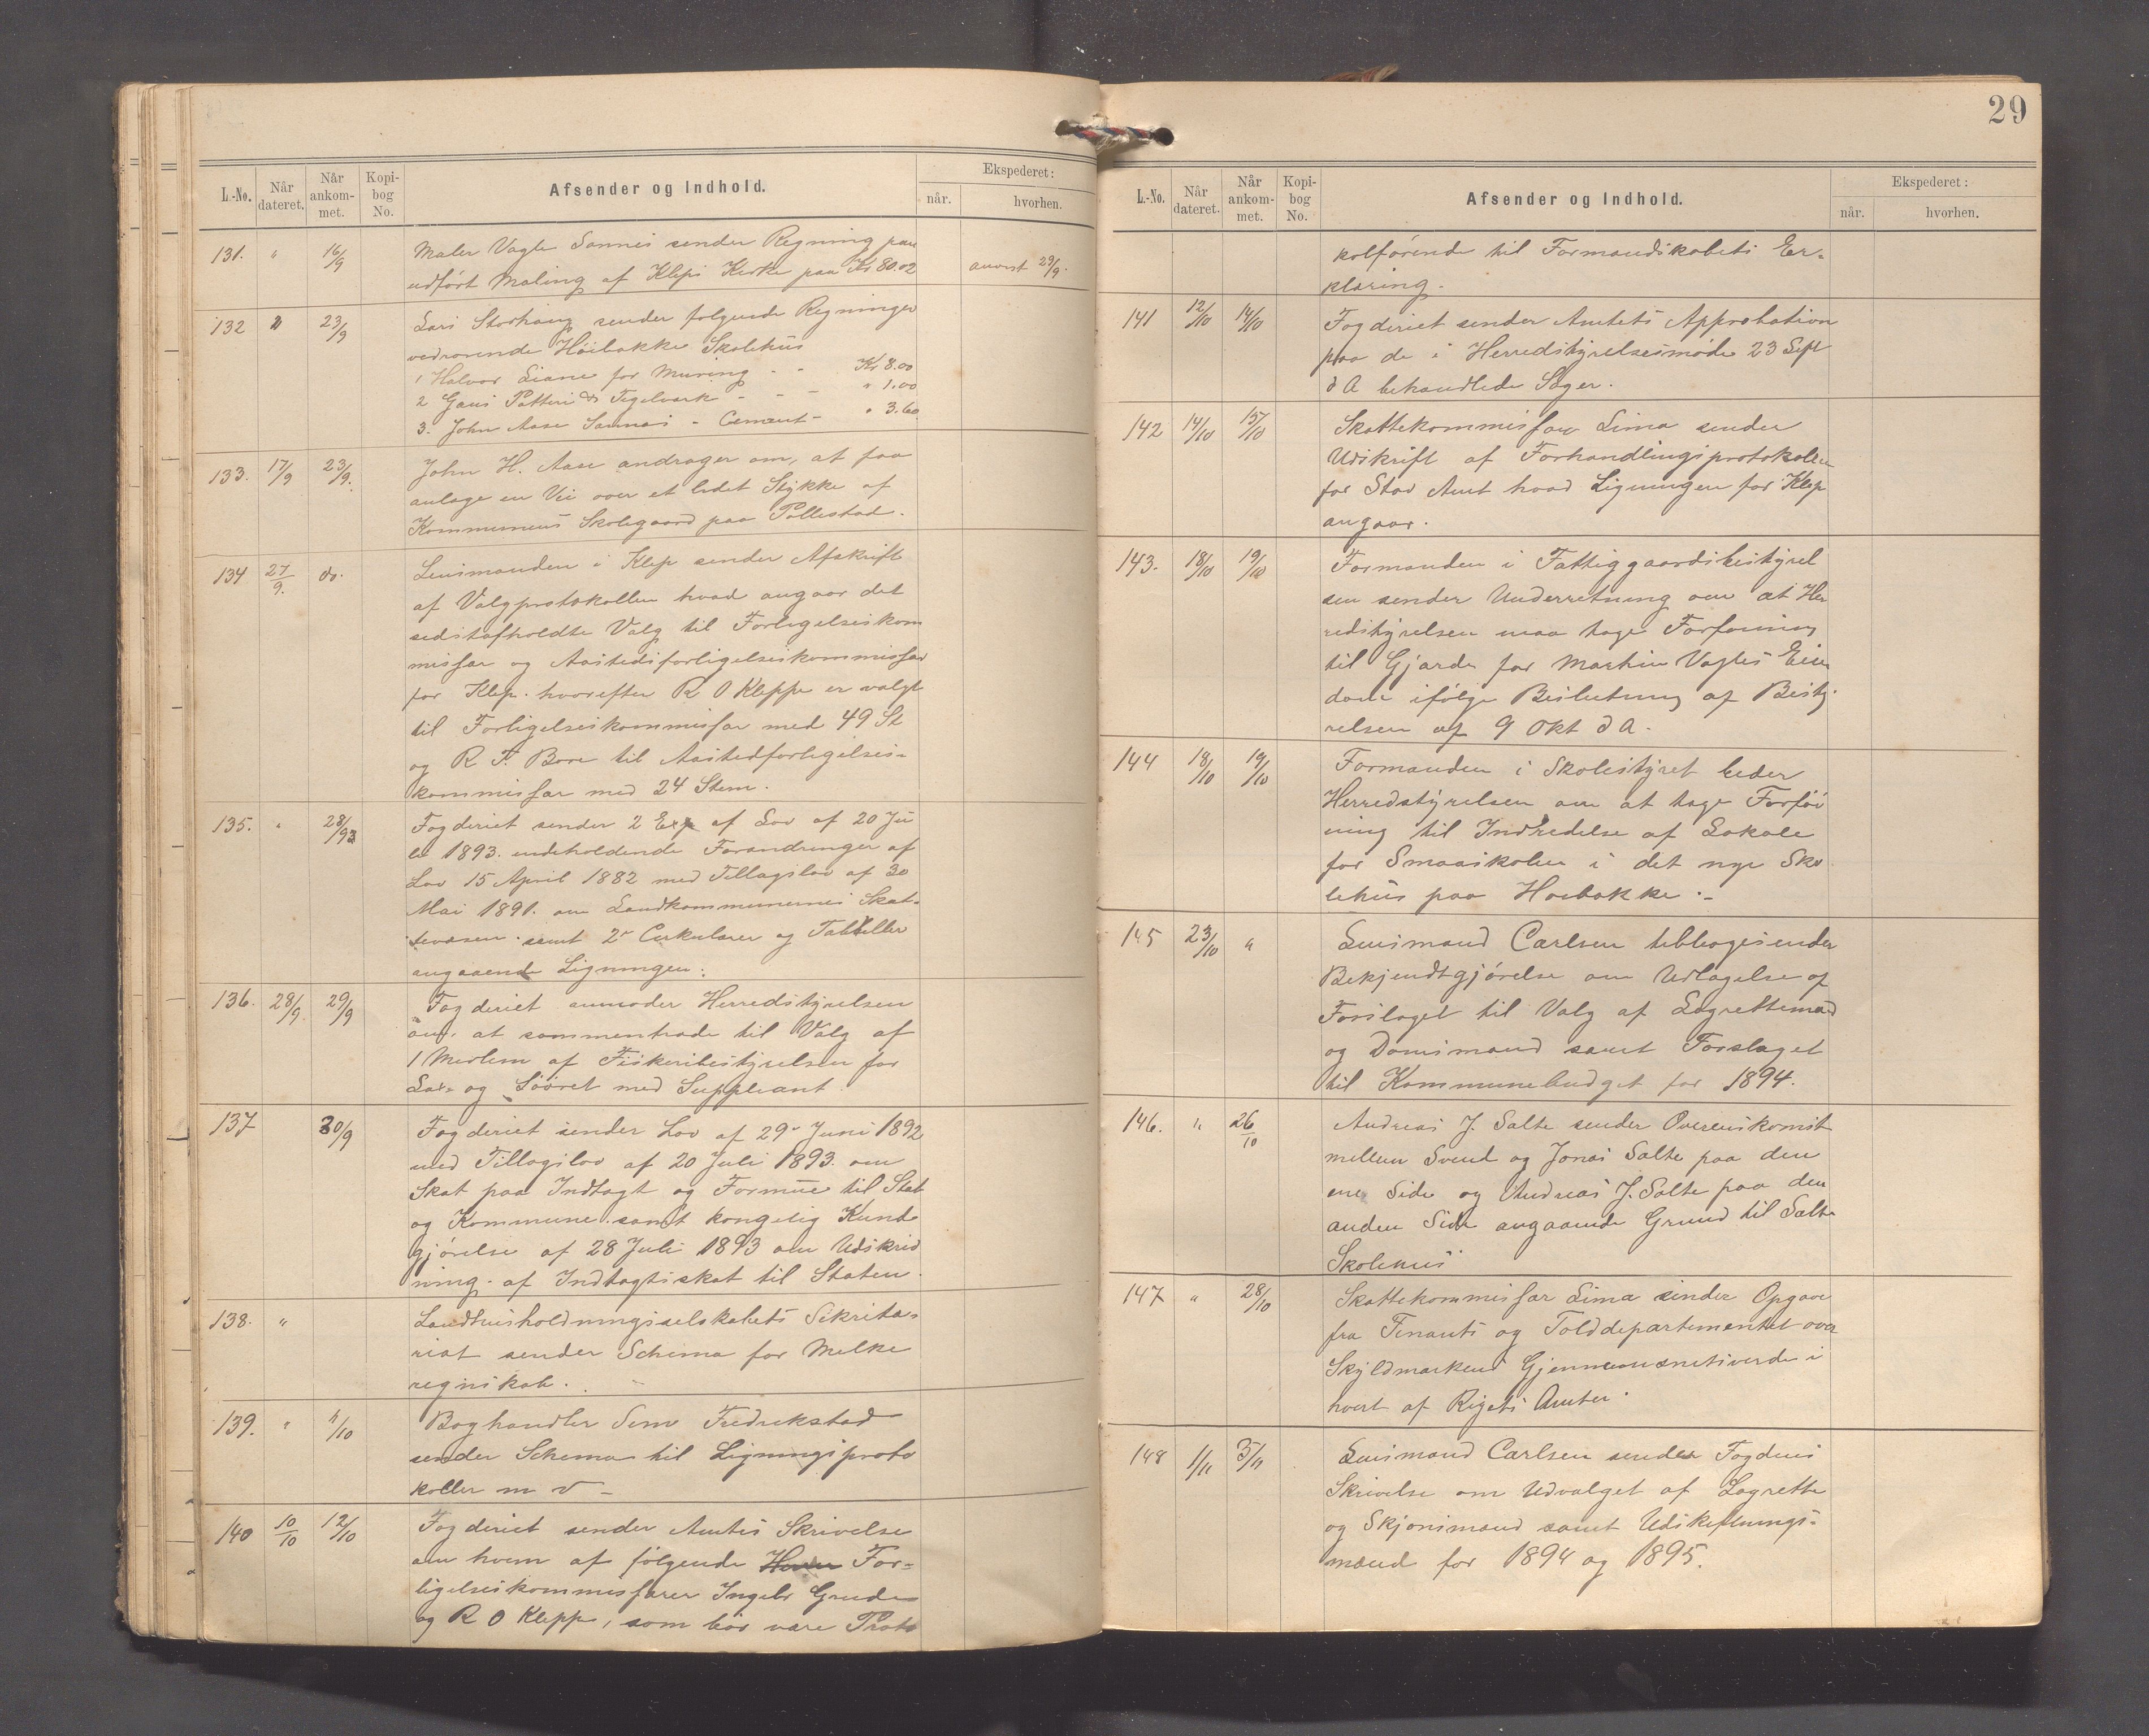 L.-No. Når dateret. Når ankom-met. Kopi-bog No. Afsender og Indhold. Ekspederet: når. hvorhen.
131. " 16/9 Maler Vagle Sannes sender Regning paa
udført Maling af Klepi Kirke paa Kr 80.02 anvist 23/9.
132 " 23/9 Lars Storhaug sender følgende Regninger
vedrørende Høibakke Skolehus
1 Halvor Liane for Muring - - Kr 8.00
2 Gans Potteri & Teglverk - - - " 1.00
3. John Aase Sannes - Cement - " 3.60
133. 17/9 23/9. John H. Aase andrager om, at faa
anlægge en Vei over et lidet Stykke af
Kommunens Skolegaard paa Pollestad.
134 27/9. do. Lensmanden i Klep sender Afskrift
af Valgprotokollen hvad angaar det
sidstafholdte Valg til Forligelseskom
missær og Aastedsforligelseskommissær
for Klep. hvorefter R O Kleppe er valgt
til Forligelseskommissær med 49 St
og R F. Bore til Aastedforligelses-
kommissær med 24 Stem.
135. " 28/93 Fogderiet sender 2 Exp af Lov af 20 Ju
li 1893. indeholdende Forandringer af
Lov 15 April 1882 med Tillægslov af 30
Mai 1891. om Landkommunernes Skat-
tevæsen. samt 2 Cirkulærer og Tabeller
angaaende Ligningen.
136. 28/9. 29/9 Fogderiet anmoder Herredstyrelsen
om. at sammentræde til Valg af
1 Medlem af Fiskeribestyrelsen for
Lax- og Søøret med Suppleant
137 30/9 Fogderiet sender Lov af 29 Juni 1892
med Tillægslov af 20 Juli 1893. om
Skat paa Indtægt og Formue til Stat
og Kommune. samt kongelig Kund
gjørelse af 28 Juli 1893 om Udskriv
ning. af Indtægtsskat til Staten.
138. " Landhusholdningsselskabets Sekreta-
riat sender Schema for Melke
regnskab.
139. " 4/10 Boghandler Sem Fredrikstad
sender Schema til Ligningsproto
koller m v -
140 10/10 12/10 Fogderiet sender Amtets Skrivelse
om hvem af følgende For-
ligelseskommissærer Ingebr Grude
og R O Kleppe, som bør være Proto
29
L.-No. Når dateret. Når ankom-met. Kopi-bog No. Afsender og Indhold. Ekspederet: når. hvorhen.
kolførende til Formandskabets Er-
klæring.
141 12/10 14/10 Fogderiet sender Amtets Approbation
paa de i Herredstyrelsesmøde 23 Sept
d A behandlede Sager.
142 14/10 15/10 Skattekommissær Lima sender
Udskrift af Forhandlingsprotokollen
for Stav Amt hvad Ligningen for Klep
angaar.
143. 18/10 19/10 Formanden i Fattiggaardsbestyrel
sen sender Underretning om at Her
redstyrelsen maa tage Forføining
til Gjærde for Martin Vagles Eien
dom ifølge Beslutning af Besty
relsen af 9 Okt d A.
144 18/10 19/10 Formanden i Skolestyret beder
Herredstyrelsen om at tage Forføi
ning til Indredelse af Lokale
for Smaaskolen i det nye Sko
lehus paa Hoebakke. -
145 23/10 " Lensmand Carlsen tilbagesender
Bekjendtgjørelse om Udlæggelse af
Forslaget til Valg af Lagrettemænd
og Domsmænd samt Forslaget
til Kommunebudget for 1894.
146. " 26/10 Andreas J. Salte sender Overenskomst
mellem Svend og Jonas Salte paa den
ene Side og Andreas J. Salte paa den
anden Side angaaende Grund til Salte
Skolehus
147 " 28/10 Skattekommissær Lima sender Opgave
fra Finants og Tolddepartementet over
Skyldmarkens Gjennemsnitsverdi i
hvert af Rigets Amter.
148 1/11 5/11 Lensmand Carlsen sender Fogdens
Skrivelse om Udvalget af Lagrette
og Skjønsmænd samt Udskiftnings-
mænd for 1894 og 1895.